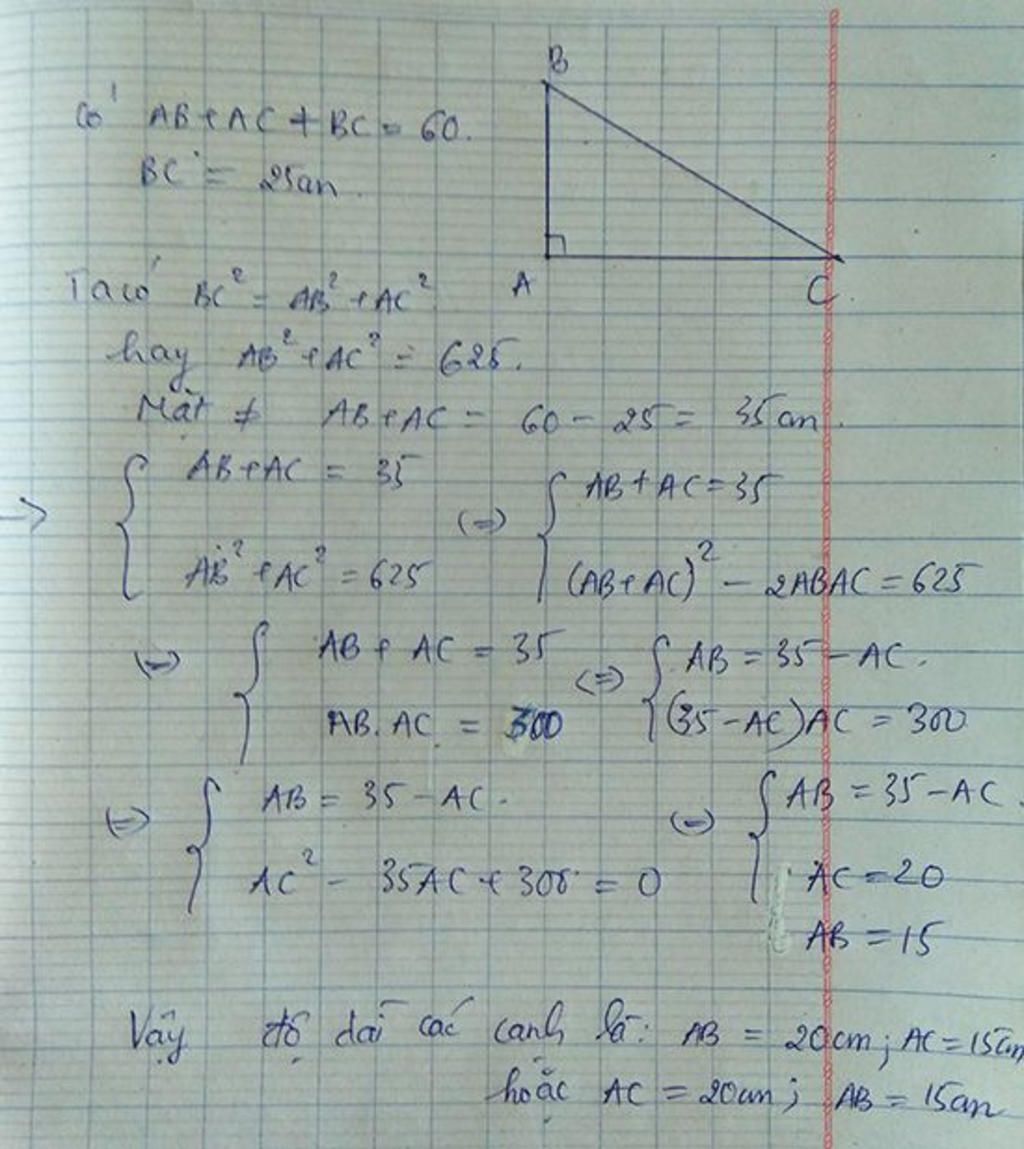 Có AB + AC + BC = 60.
BC = 25cm.
B
A
C
Ta có BC² = AB² + AC²
hay AB² + AC² = 625.
Mặt ≠ AB + AC = 60 - 25 = 35 cm.
=> { AB + AC = 35 (=) { AB + AC = 35
AB² + AC² = 625 (AB + AC)² - 2ABAC = 625
(=) { AB + AC = 35 (=) { AB = 35 - AC.
AB. AC = 300 (35 - AC)AC = 300
(=) { AB = 35 - AC. (=) { AB = 35 - AC.
AC² - 35AC + 300 = 0 AC = 20
AB = 15
Vậy độ dài các cạnh là: AB = 20cm; AC = 15cm
hoặc AC = 20cm; AB = 15cm